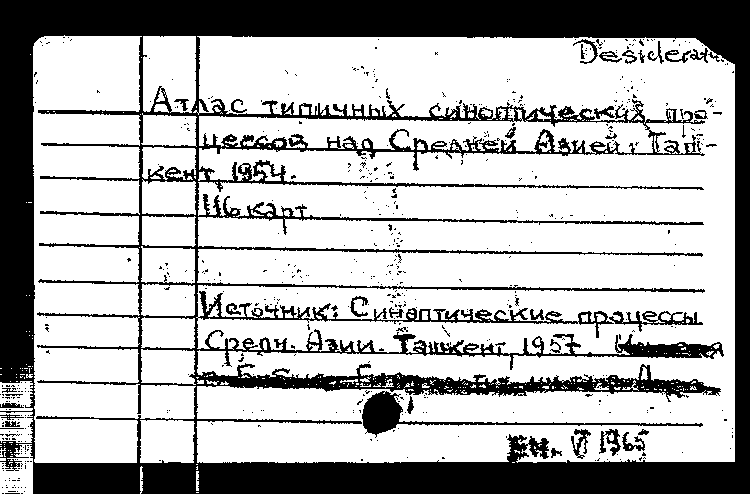 Desiderata
Атлас типичных синоптических про-
цессов над Средней Азией. Таш-
кент, 1954.
116 карт.
Источник: Синоптические процессы
Средн. Азии. Ташкент, 1957.
VI 1965